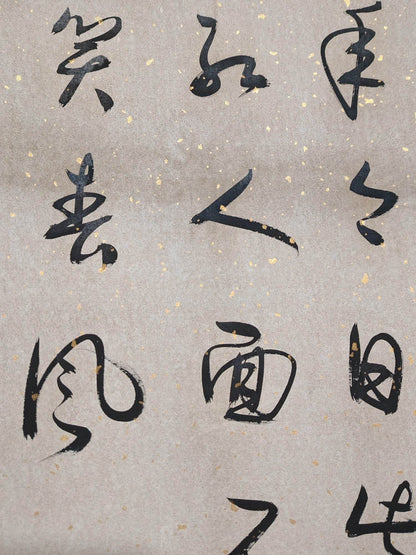 年今日此
红人面不
笑春风